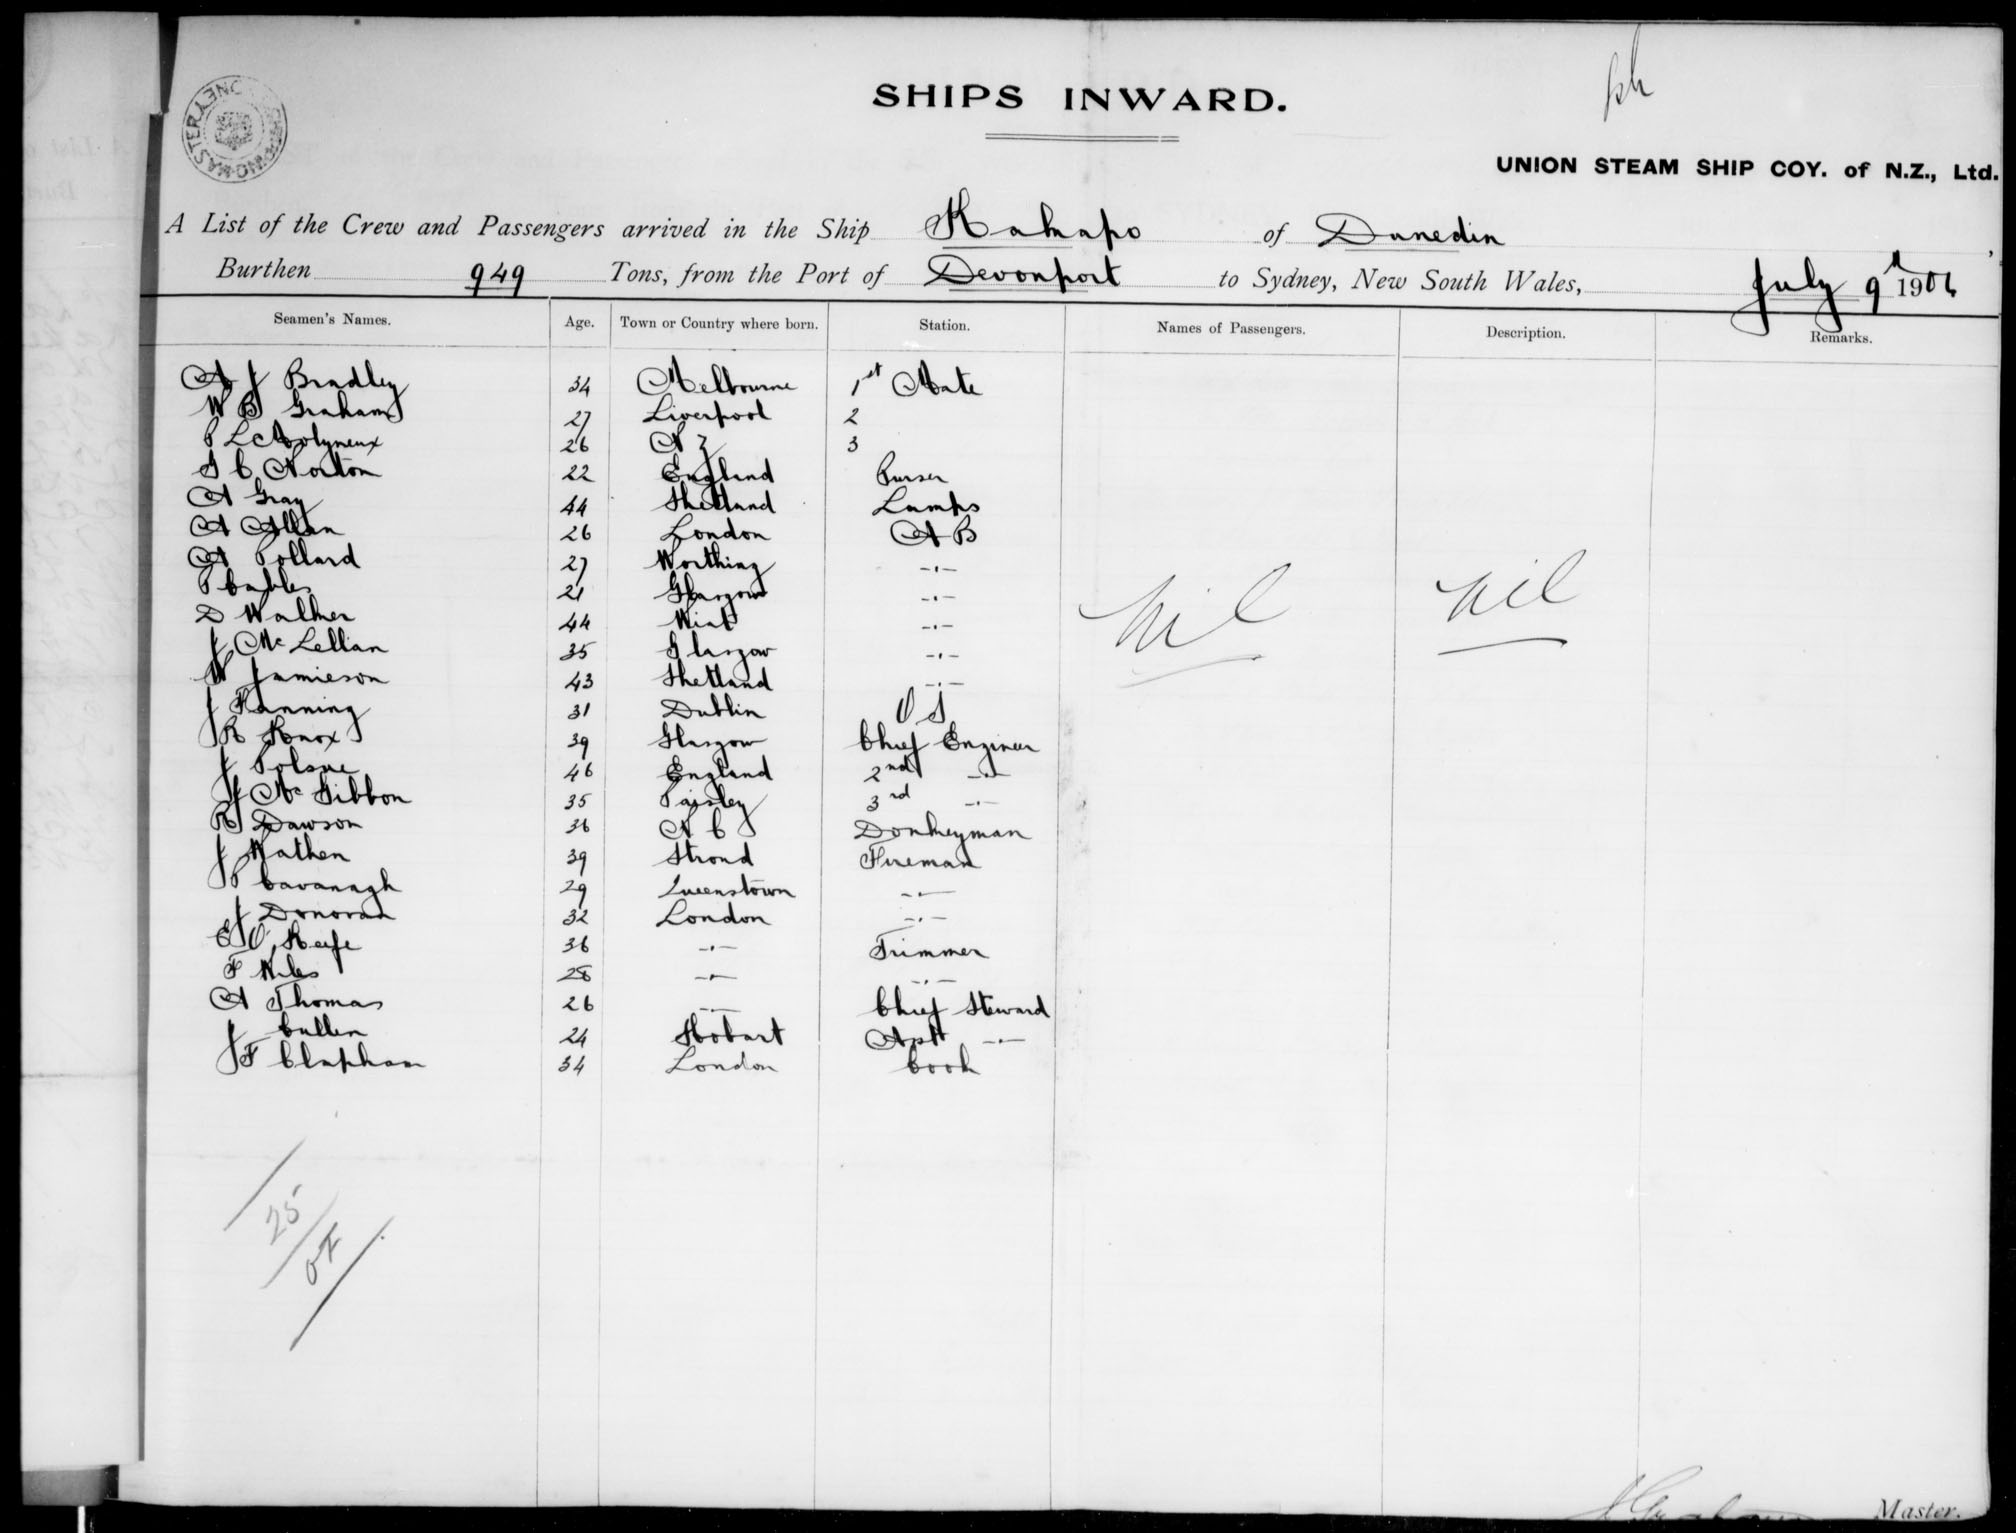 SHIPS INWARD.
UNION STEAM SHIP COY. of N.Z., Ltd.
A List of the Crew and Passengers arrived in the Ship Kakapo of Dunedin,
Burthen 949 Tons, from the Port of Devonport to Sydney, New South Wales, July 9th 1906
Seamen's Names. Age. Town or Country where born. Station. Names of Passengers. Description. Remarks.
A J Bradley 34 Melbourne 1st Mate
W B Graham 27 Liverpool 2
P L Molyneux 26 N Z 3
G C Norton 22 England Purser
A Gray 44 Shetland Lamps
A Allan 26 London A B
A Pollard 27 Worthing -"-
P Cables 21 Glasgow -"-
D Walker 44 -"-
J McLellan 35 Glasgow -"-
W Jamieson 43 Shetland -"-
J Fanning 31 Dublin O S
R Knox 39 Glasgow Chief Engineer
J 46 England 2nd -"-
J McGibbon 35 Paisley 3rd -"-
R Dawson 36 N C Donkeyman
J Wathen 39 Stroud Fireman
P Cavanagh 29 Queenstown -"-
J Donovan 32 London -"-
E O'Keefe 36 -"- Trimmer
F Niles 28 -"- -"-
A Thomas 26 -"- Chief Steward
J Cullen 24 Hobart Asst -"-
F Clapham 34 London Cook
Nil Nil
25
Master.